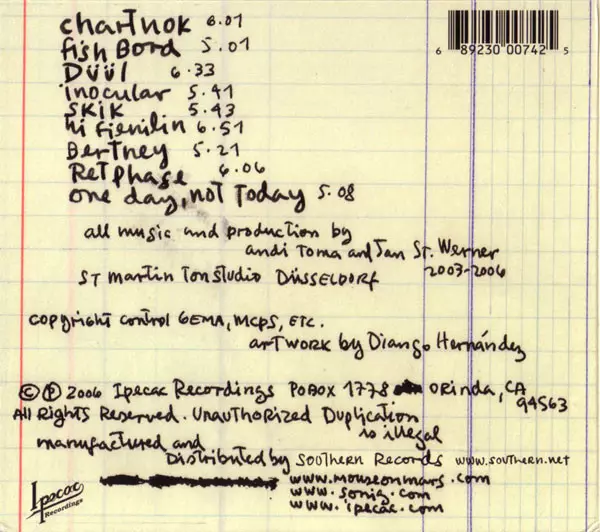 chartnok 6.01
fish Bord 5.01
Düül 6.33
inocular 5.41
SKIK 5.43
hi fienilin 6.51
Bertney 5.21
Retphase 6.06
one day, not Today 5.08
6 89230 00742 5
all music and production by
andi Toma and Jan St. Werner
2003-2006
ST martin Tonstudio DÜSSELDORF
copyright control GEMA, MCPS, ETC.
artwork by Diango Hernández
© ℗ 2006 Ipecac Recordings POBOX 1778 Orinda, CA
94563
All Rights Reserved. Unauthorized Duplication
is illegal
manufactured and
Distributed by Southern Records www.southern.net
www.mouseonmars.com
www.sonig.com
www.ipecac.com
Ipecac
Recordings